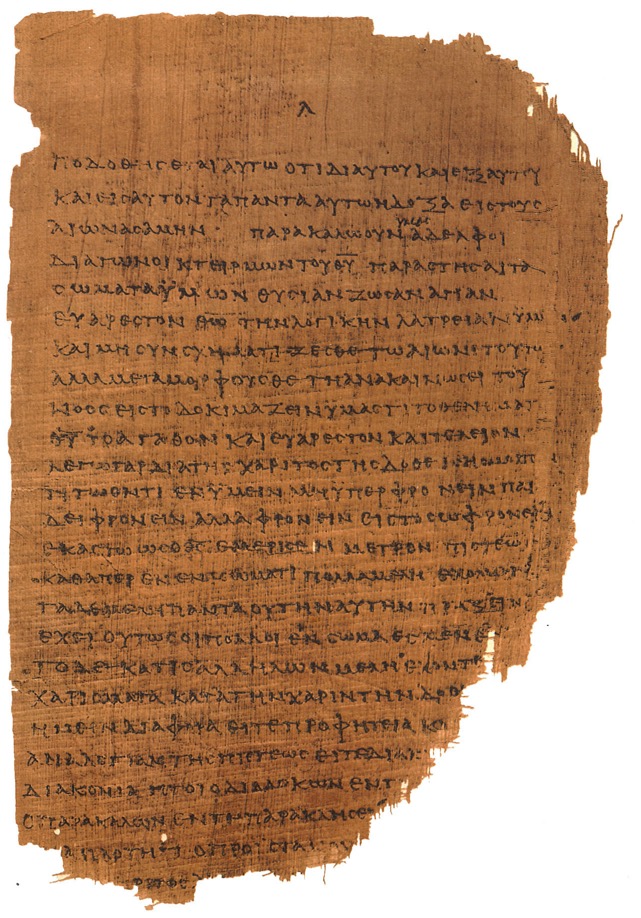 Λ
ΠΟΔΟΘΗϹΕΤΑΙ ΑΥΤΩ ΟΤΙ ΔΙ ΑΥΤΟΥ ΚΑΙ ΕΞ ΑΥΤΟΥ
ΚΑΙ ΕΙϹ ΑΥΤΟΝ ΤΑ ΠΑΝΤΑ ΑΥΤΩ Η ΔΟΞΑ ΕΙϹ ΤΟΥϹ
ΑΙΩΝΑϹ ΑΜΗΝ ΠΑΡΑΚΑΛΩ ΟΥΝ ΥΜΑϹ ΑΔΕΛΦΟΙ
ΔΙΑ ΤΩΝ ΟΙΚΤΕΙΡΜΩΝ ΤΟΥ Θ̅Υ̅ ΠΑΡΑϹΤΗϹΑΙ ΤΑ
ϹΩΜΑΤΑ ΫΜΩΝ ΘΥϹΙΑΝ ΖΩϹΑΝ ΑΓΙΑΝ
ΕΥΑΡΕϹΤΟΝ Θ̅Ω̅ ΤΗΝ ΛΟΓΙΚΗΝ ΛΑΤΡΕΙΑΝ ΥΜΩ
ΚΑΙ ΜΗ ϹΥΝϹΧΗΜΑΤΙΖΕϹΘΕ ΤΩ ΑΙΩΝΙ ΤΟΥΤΩ
ΑΛΛΑ ΜΕΤΑΜΟΡΦΟΥϹΘΕ ΤΗ ΑΝΑΚΑΙΝΩϹΕΙ ΤΟΥ
ΝΟΟϹ ΕΙϹ ΤΟ ΔΟΚΙΜΑΖΕΙΝ ΫΜΑϹ ΤΙ ΤΟ ΘΕΛΗΜΑ ΤΟΥ
Θ̅Υ̅ ΤΟ ΑΓΑΘΟΝ ΚΑΙ ΕΥΑΡΕϹΤΟΝ ΚΑΙ ΤΕΛΕΙΟΝ
ΛΕΓΩ ΓΑΡ ΔΙΑ ΤΗϹ ΧΑΡΙΤΟϹ ΤΗϹ ΔΟΘΕΙϹΗϹ ΜΟΙ Π
ΤΙ ΤΩ ΟΝΤΙ ΕΝ ΫΜΕΙΝ ΜΗ ΫΠΕΡΦΡΟΝΕΙΝ ΠΑΡ
ΔΕΙ ΦΡΟΝΕΙΝ ΑΛΛΑ ΦΡΟΝΕΙΝ ΕΙϹ ΤΟ ϹΩΦΡΟΝΕΙ
ΕΚΑϹΤΩ ΩϹ Ο Θ̅Ϲ̅ ΕΜΕΡΙϹΕΝ ΜΕΤΡΟΝ ΠΙϹΤΕΩ
ΚΑΘΑΠΕΡ ΕΝ ΕΝΙ ϹΩΜΑΤΙ ΠΟΛΛΑ ΜΕΛΗ ΕΧΟΜΕ
ΤΑ ΔΕ ΜΕΛΗ ΠΑΝΤΑ ΟΥ ΤΗΝ ΑΥΤΗΝ ΠΡΑΞΙΝ
ΕΧΕΙ ΟΥΤΩϹ ΟΙ ΠΟΛΛΟΙ ΕΝ ϹΩΜΑ ΕϹΜΕΝ Ε
ΤΟ ΔΕ ΚΑΤ ΙϹ ΑΛΛΗΛΩΝ ΜΕΛΗ ΕΧΟΝΤ
ΧΑΡΙϹΜΑΤΑ ΚΑΤΑ ΤΗΝ ΧΑΡΙΝ ΤΗΝ ΔΟ
ΗΜΕΙΝ ΔΙΑΦΟΡΑ ΕΙΤΕ ΠΡΟΦΗΤΕΙΑ Κ
ΑΝΑΛΟΓΙΑΝ ΤΗϹ ΠΙϹΤΕΩϹ ΕΙΤΕ ΔΙΑΚ
ΔΙΑΚΟΝΙΑ ΗΤΟΙ Ο ΔΙΔΑϹΚΩΝ ΕΝ Τ
Ο ΠΑΡΑΚΑΛΩΝ ΕΝ ΤΗ ΠΑΡΑΚΛΗϹΕ
ΑΠΛΟΤΗΤΙ Ο ΠΡΟΙϹΤΑ